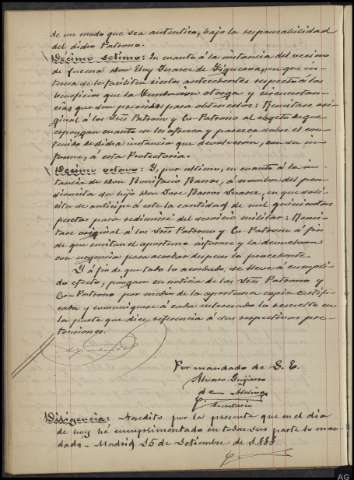 de un modo que sea auténtica, bajo la responsabilidad
del dicho Patrono.
Décimo setimo: En cuanto á la instancia del vecino
de Lucena Don Eloy Suarez de Figueroa, que in-
teresa se le faciliten ciertos antecedentes respecto á los
beneficios que la Fundacion otorga y circunstan-
cias que son precisas para obtenerlos: Remitase ori-
ginal á los Sres Patrono y Co-Patrono al objeto de que
expongan cuanto en los informes y parezca sobre el con-
tenido de dicha instancia que devolveran, con su in-
forme, á este Protectorado.
Décimo octavo: Y, por ultimo, en cuanto á la ins-
tancia de Don Bonifacio Ramos, á nombre del pen-
sionista su hijo Don José Ramos Suarez, en que soli-
cita se anticipe á este la cantidad de mil quinientas
pesetas para redimirse del servicio militar: Remi-
tase original á los Sres Patrono y Co-Patrono á fin
de que emitan el oportuno informe y la devuelvan
con urgencia para acordar despues lo procedente.
Y á fin de que todo lo acordado, se lleve á cumpli-
do efecto, pongase en noticia de los Sres Patrono y
Co-Patrono por medio de la oportuna copia certifi-
cada y comuniquese á cada interesado lo resuelto en
la parte que dice referencia á sus respectivas pre-
tensiones.
Por mandado de S. E.
Alvaro
de
Secretario
Diligencia: Acredito por la presente que en el dia
de hoy he cumplimentado en todas sus partes lo man-
dado. Madrid 25 de Setiembre de 1888.
AG